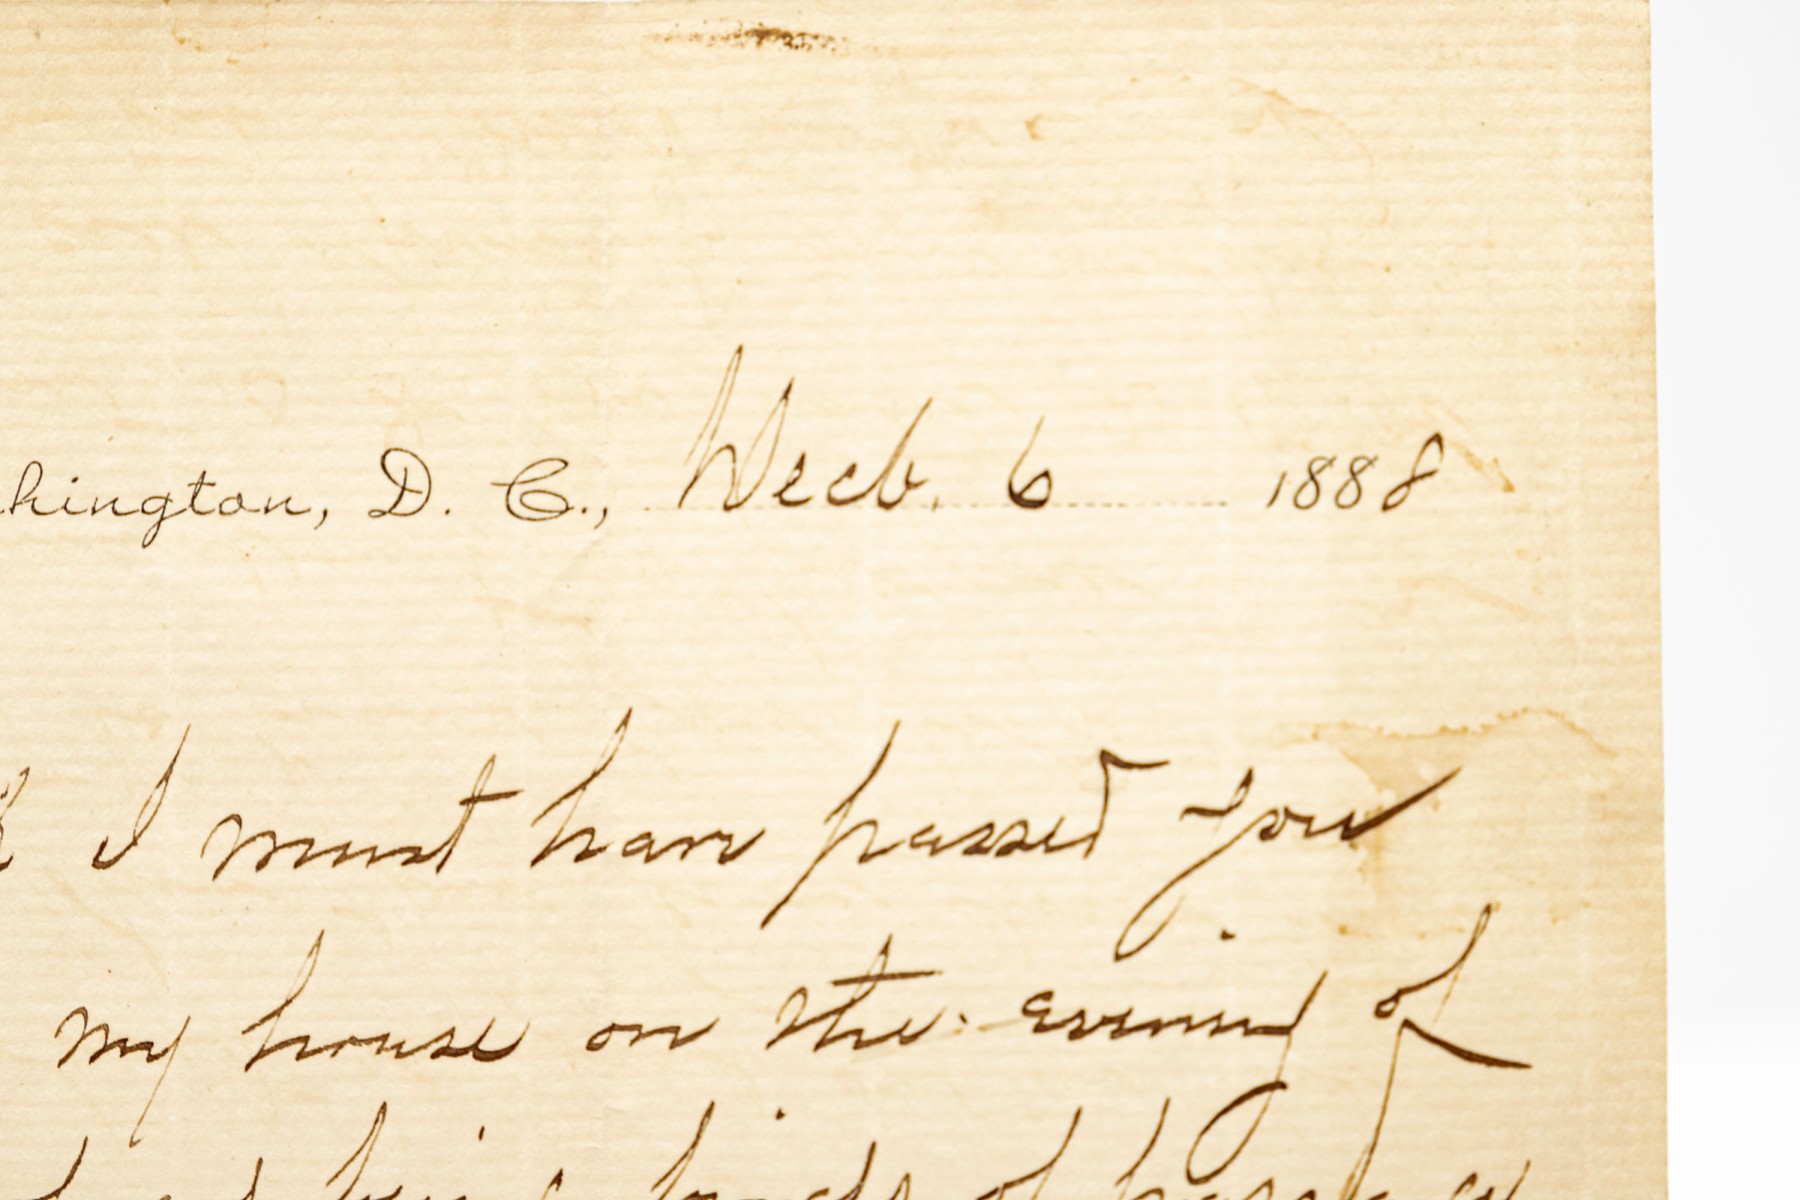 hington, D. C., Decb. 6 1888
I must have passed you
my house on the evening of
of